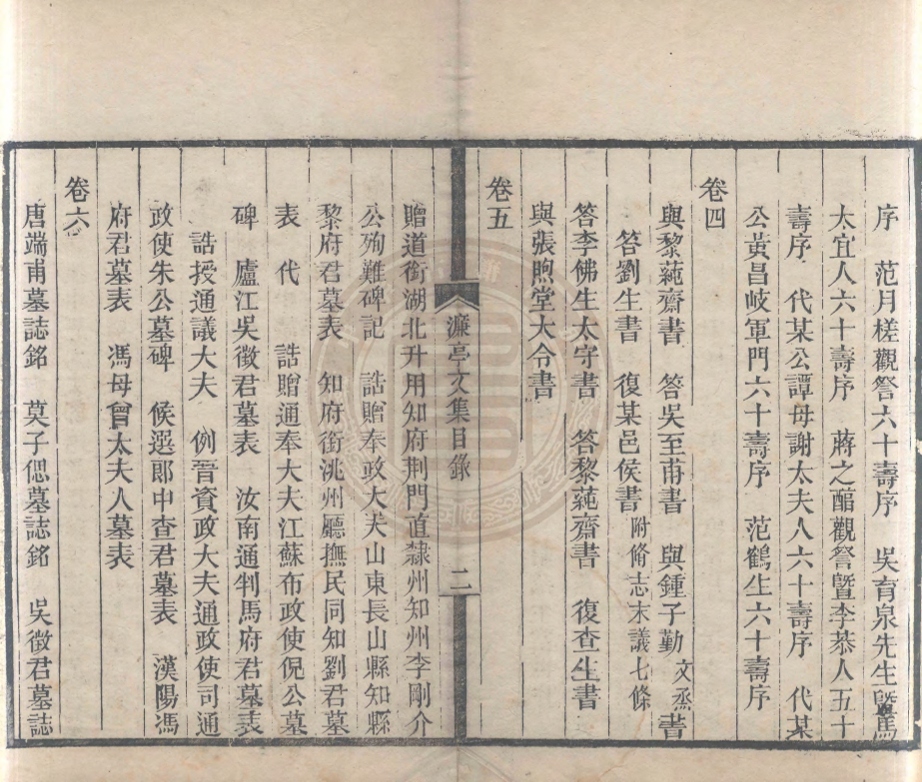 序　范月槎觀詧六十壽序　吳育泉先生暨馬
太宜人六十壽序　蔣之酣觀詧暨李恭人五十
壽序　代某公譚母謝太夫人六十壽序　代某
公黃昌岐軍門六十壽序　范鶴生六十壽序
卷四
與黎蒓齋書　答吳至甫書　與鍾子勤文烝書
答劉生書　復某邑侯書附脩志末議七條
答李佛生太守書　答黎蒓齋書　復查生書
與張煦堂大令書
卷五
濂亭文集目錄　二
贈道銜湖北升用知府荆門直隸州知州李剛介
公殉難碑記　誥贈奉政大夫山東長山縣知縣
黎府君墓表　知府銜洮州廳撫民同知劉君墓
表　代　誥贈通奉大夫江蘇布政使倪公墓
碑　廬江吳徵君墓表　汝南通判馬府君墓表
誥授通議大夫　例晉資政大夫通政使司通
政使朱公墓碑　候選郎中查君墓表　漢陽馮
府君墓表　馮母曾太夫人墓表
卷六
唐端甫墓誌銘　莫子偲墓誌銘　吳徵君墓誌